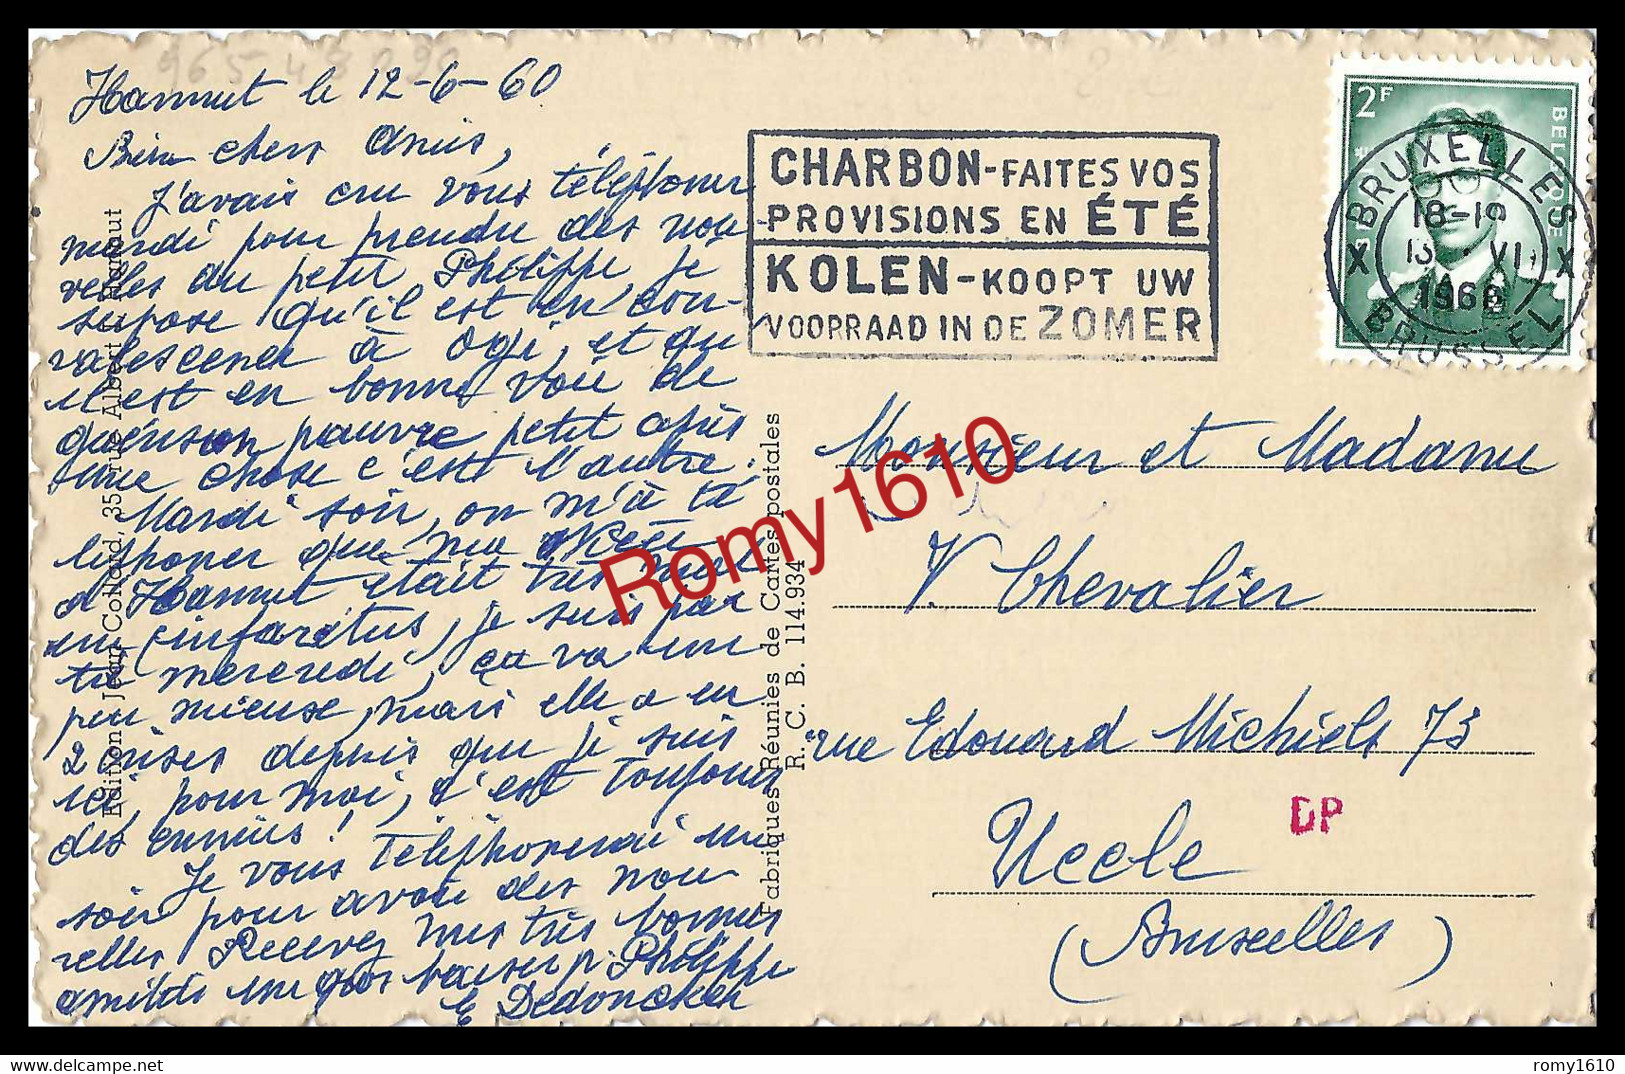 Hannut le 12-6-60
Bien chers Amis,
J'avais cru vous téléphoner
mardi pour prendre des nou-
velles du petit Philippe, je
supose qu'il est en con-
valescence à ogi, et qu
il est en bonne voie de
guérison pauvre petit après
une chose c'est l'autre.
Mardi soir, on m'à té
lephoner que ma
d'Hannut était très mal
un infarctus, je suis par
tie mercredi, ça va un
peu mieuse, mais elle a eu
2 crises depuis que je suis
ici, pour moi, s'est toujours
des ennuis!
Je vous téléphonerai un
soir pour avoir des nou
velles Recevez mes très bonnes
amitiés un gros baiser p. Philippe
E Dedoncker
CHARBON-FAITES VOS
PROVISIONS EN ÉTÉ
KOLEN-KOOPT UW
VOORRAAD IN DE ZOMER
2F
BELGIQUE
BRUXELLES
X X
18-19
13 VI
1960
BRUSSEL
Monsieur et Madame
V. Chevalier
rue Edouard Michiels 73
Uccle
(Bruxelles)
DP
Edition: Jean Collard, 35, rue Albert I, Hannut
Fabriques Réunies de Cartes postales
R. C. B. 114.934
Romy1610
delcampe.net
romy1610